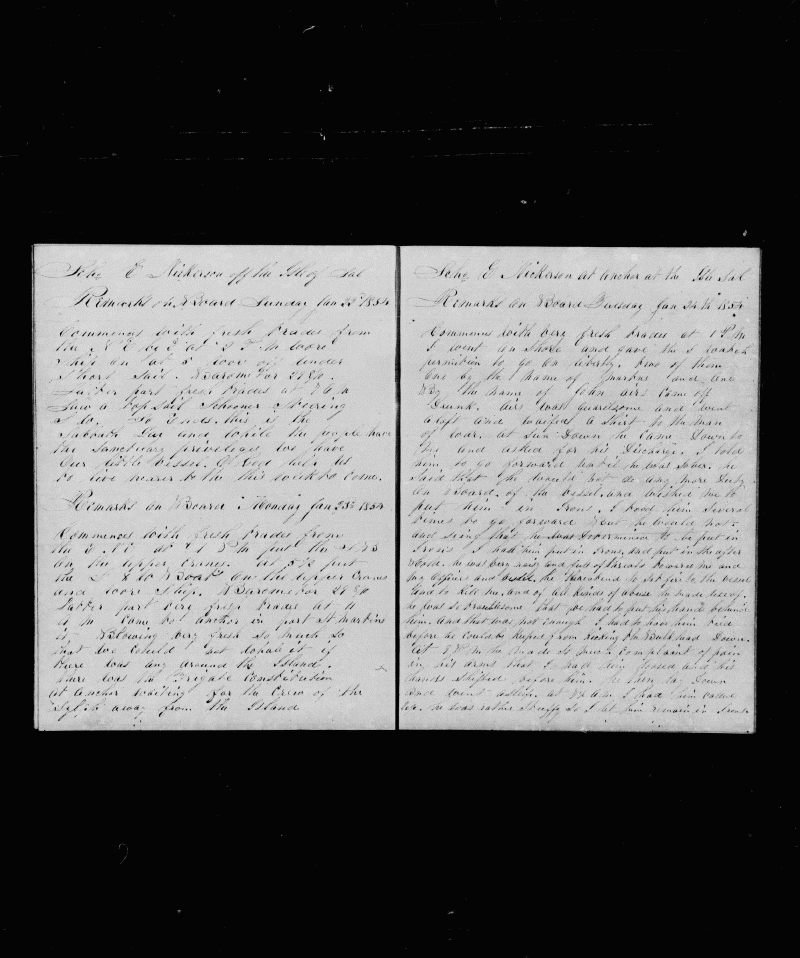 Schr E Nickerson off the Isle of Sal
Remarks on Board Sunday Jan 22d 1854
Commences with fresh trades from
the N E by E at 2 P.M. wore
Ship on at 5 wore off under
Short Sail. Barometer 29 80.
Latter part fresh trades at 8 A M
Saw a top Sail Schooner Steering
S W. So Ends. this is the
Sabbath Day and while the people have
the Sanctuary priveleges we have
Our little vessel. O God help us
to live nearer to the this week to come.
Remarks on Board Monday Jan 23d 1854
Commences with fresh trades from
the E N E at 4 P M put the
on the upper cranes. at 5 1/2 put
the S & W Boat on the upper Cranes
and wore Ship. Barometer 29 80
Latter part very fresh trades at 11
A M Come to anchor in port St martins
it Blowing very fresh so much so
that we could not
there was any around the Island.
there was the Frigate Constitution
at anchor waiting for the Crew of the
away from the Island
Schr E Nickerson at anchor at the Isle Sal
Remarks on Board Tuesday Jan 24th 1854
Commences with very fresh trades at 1 P M
I went on Shore and gave the S Watch
permition to go on liberty. two of them
One by the name of and one
By the name of John airs Come off
Drunk. airs was quarelsome and went
aloft and waifed a Shirt to the man
of war. at Sun Down he Came Down to
me and asked for his Discharge. I told
him to go forward until he was Sober. he
Said that he would not do any more Duty
on Board of the vessel. and wished me to
put him in Irons. I told him Several
times to go forward But he would not
and Seing that he was Determined to be put in
Irons I had him put in Irons, and put in the after
Hold. he was very noisy and full of threats towards me and
my officers and vessel. he threatened to set fire to the vessel
and to kill me, and of all kinds of abuse he made use of.
he was so troublesome that we had to put his hands behind
him. and that was not enough I had to have him tied
before he could be keped from kicking the Bulkhead Down.
at 8 P M he made So much Complaint of pain
in his arms that I had him loosed and his
hands Shifted before him. he then lay Down
and went asleep. at 8 A M I had him called
he was rather Stuffy So I let him remain in Irons.